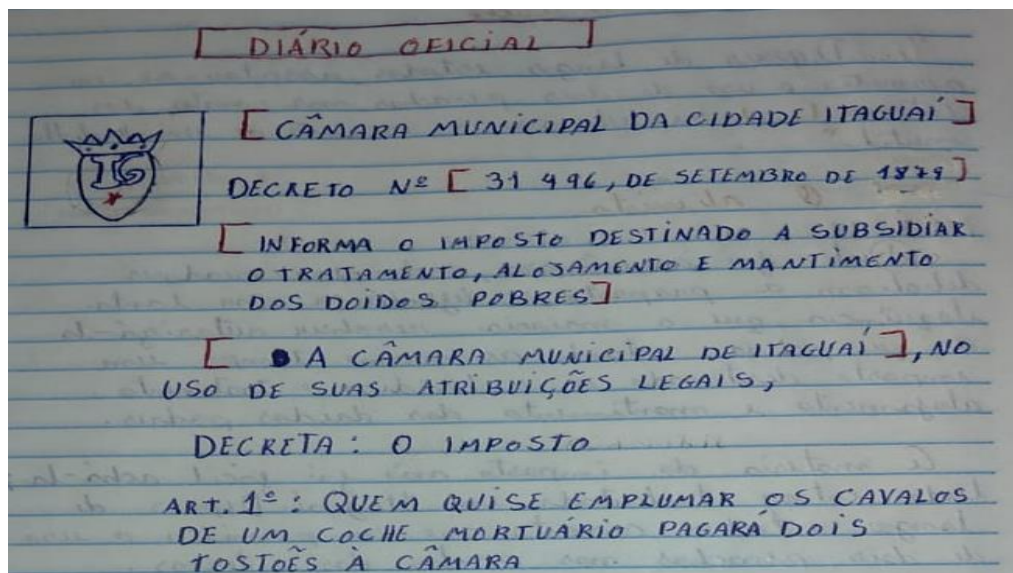 [ DIÁRIO OFICIAL ]
[ CÂMARA MUNICIPAL DA CIDADE ITAGUAÍ ]
IG
DECRETO Nº [ 31 496, DE SETEMBRO DE 1879 ]
[ INFORMA O IMPOSTO DESTINADO A SUBSIDIAR
O TRATAMENTO, ALOJAMENTO E MANTIMENTO
DOS DOIDOS POBRES ]
[ A CÂMARA MUNICIPAL DE ITAGUAÍ ], NO
USO DE SUAS ATRIBUIÇÕES LEGAIS,
DECRETA: O IMPOSTO
ART. 1º: QUEM QUISE EMPLUMAR OS CAVALOS
DE UM COCHE MORTUÁRIO PAGARÁ DOIS
TOSTOÊS À CÂMARA